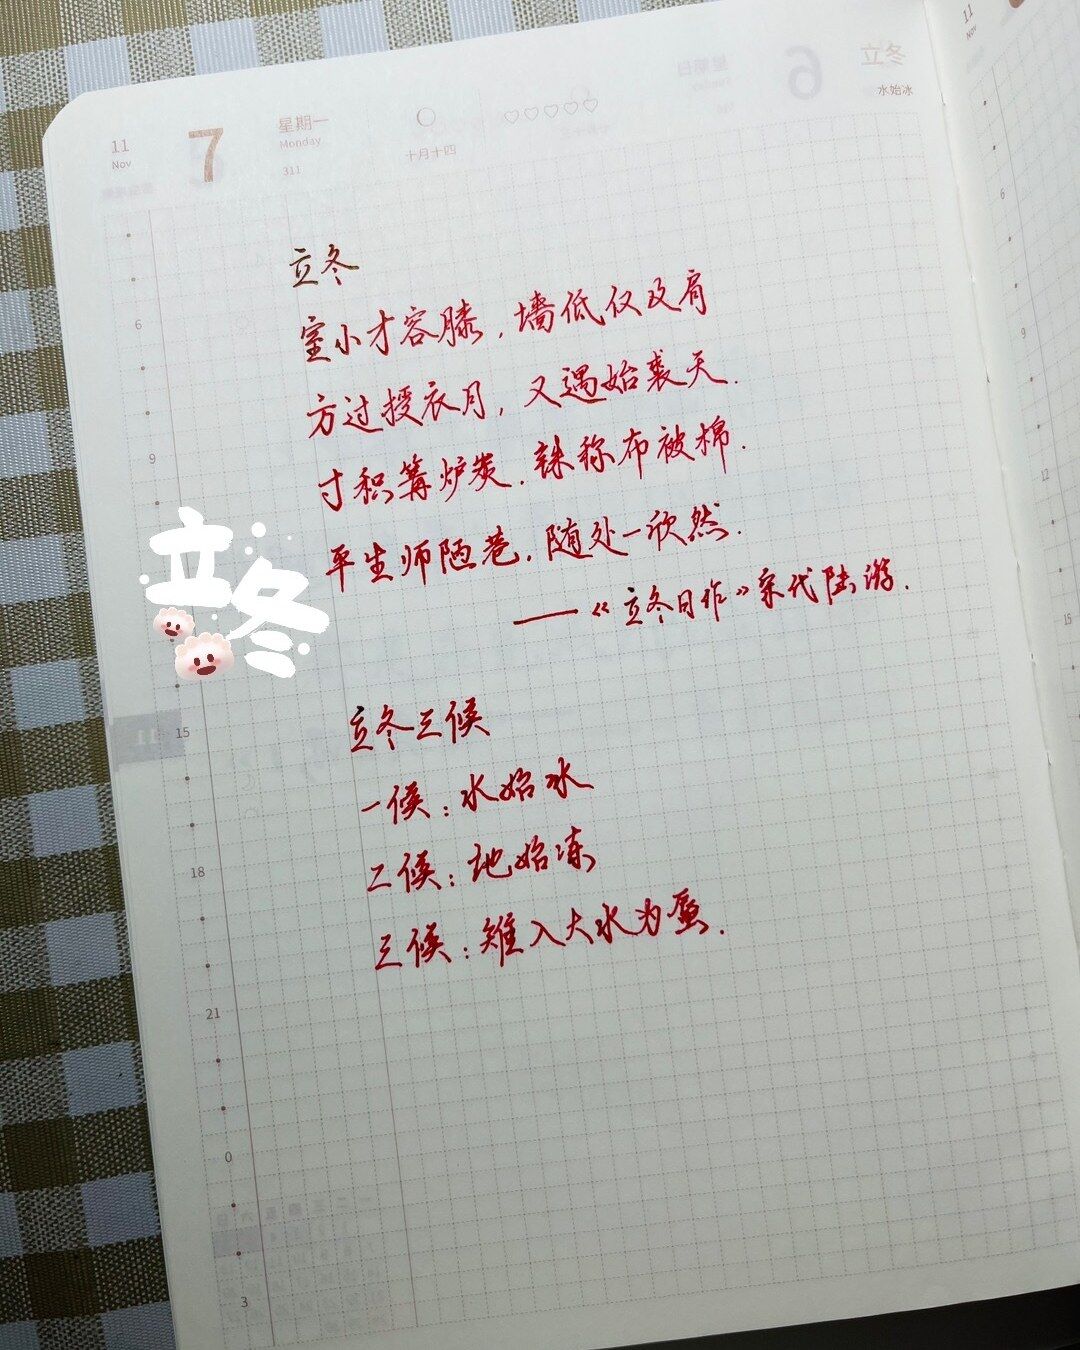 11
Nov
7
星期一
Monday
311
十月十四
6
立冬
水始冰
11
Nov
立冬
室小才容膝，墙低仅及肩
方过授衣月，又遇始裘天.
寸积篝炉炭，铢称布被棉.
平生师陋巷，随处一欣然.
——《立冬日作》宋代陆游.
立冬
立冬三候
一候：水始冰
二候：地始冻
三候：雉入大水为蜃.
6
9
15
18
21
0
3
6
9
12
15